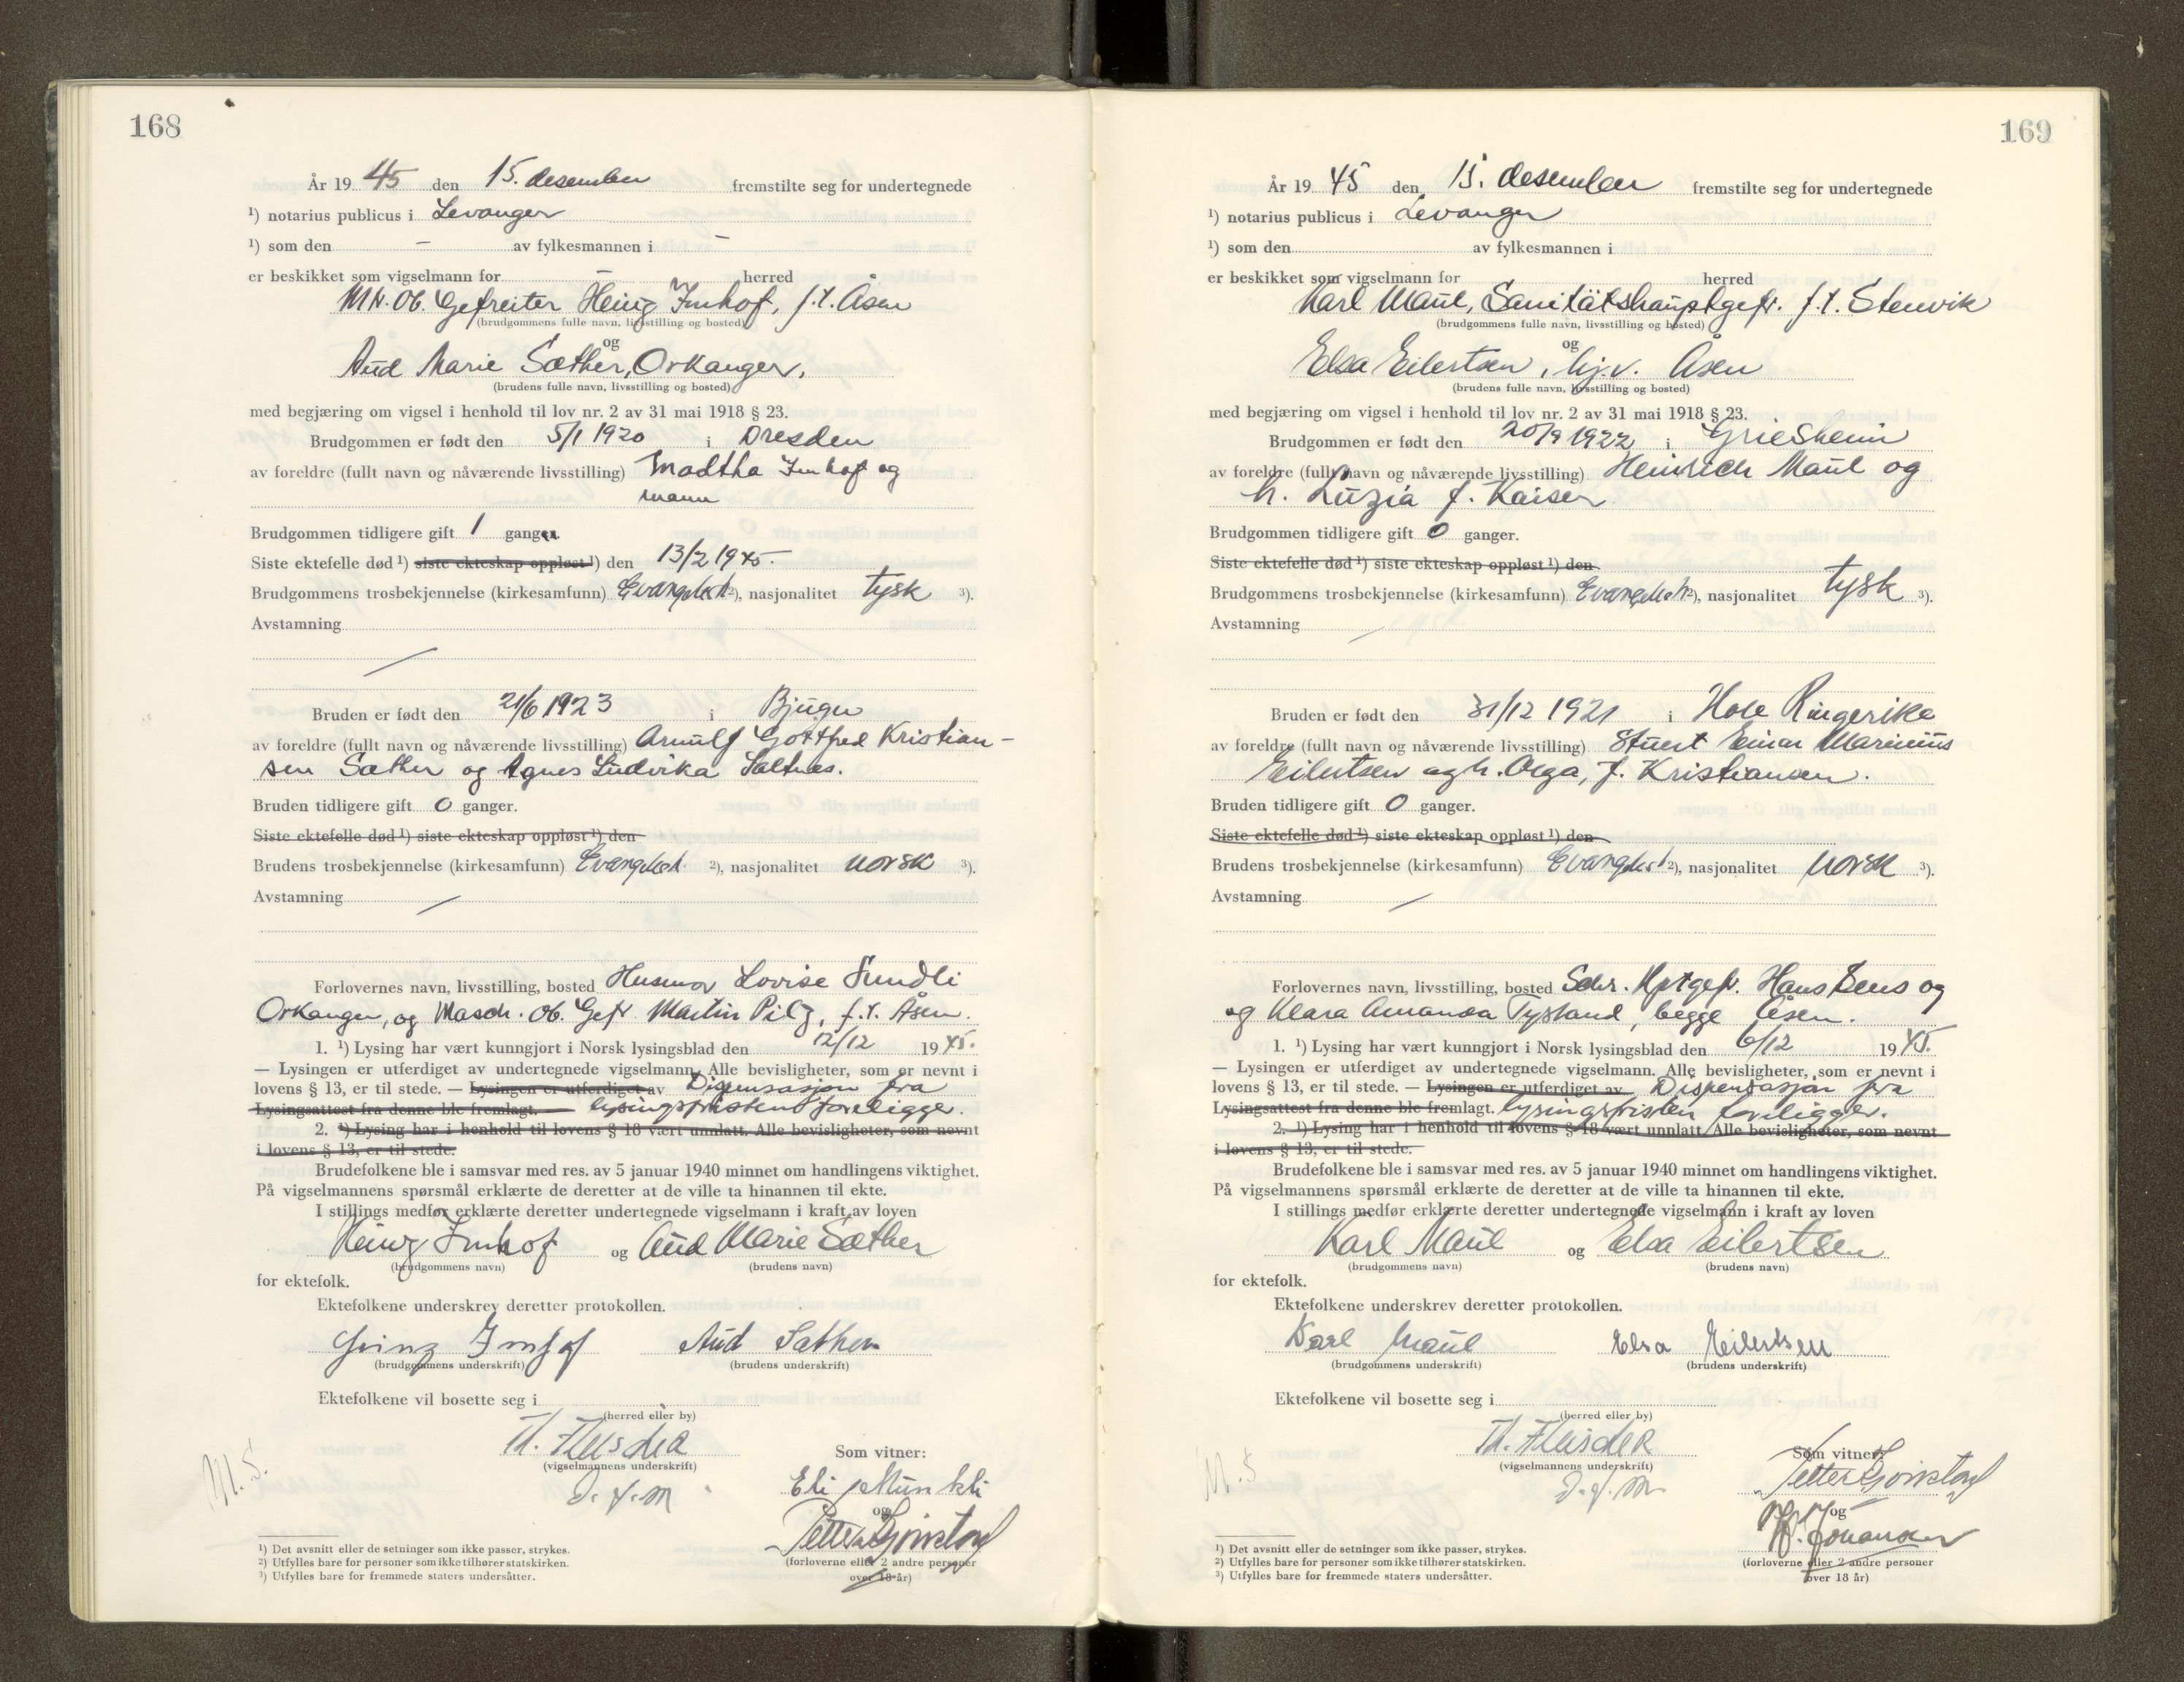 168
År 19 45 den 15. desember fremstilte seg for undertegnede
¹) notarius publicus i Levanger
¹) som den – av fylkesmannen i –
er beskikket som vigselmann for – herred
Ob. Gefreiter Heinz Imhof, f.t. Åsen
(brudgommens fulle navn, livsstilling og bosted)
og
Aud Marie Sæther, Orkanger,
(brudens fulle navn, livsstilling og bosted)
med begjæring om vigsel i henhold til lov nr. 2 av 31 mai 1918 § 23.
Brudgommen er født den 5/1 1920 i Dresden
av foreldre (fullt navn og nåværende livsstilling) Imhof og
mann
Brudgommen tidligere gift 1 ganger.
Siste ektefelle død ¹) siste ekteskap oppløst ¹) den 13/2 1945.
Brudgommens trosbekjennelse (kirkesamfunn) Evangelisk ²), nasjonalitet tysk ³).
Avstamning
Bruden er født den 21/6 1923 i Bjugn
av foreldre (fullt navn og nåværende livsstilling) Arnulf Gottfred Kristian-
sen Sæther og Agnes Ludvika Saltnes.
Bruden tidligere gift 0 ganger.
Siste ektefelle død ¹) siste ekteskap oppløst ¹) den
Brudens trosbekjennelse (kirkesamfunn) Evangelisk ²), nasjonalitet norsk ³).
Avstamning
Forlovernes navn, livsstilling, bosted Husmor Lovise Sundli
Orkanger, og Masch. Ob. Gefr. Martin Pilz, f.t. Åsen.
1. ¹) Lysing har vært kunngjort i Norsk lysingsblad den 12/12 1945.
— Lysingen er utferdiget av undertegnede vigselmann. Alle bevisligheter, som er nevnt i
lovens § 13, er til stede. — Lysingen er utferdiget av Dispensasjon fra
Lysingsattest fra denne ble fremlagt. — lysingsfristen foreligge.
2. ¹) Lysing har i henhold til lovens § 18 vært unnlatt. Alle bevisligheter, som nevnt
i lovens § 13, er til stede.
Brudefolkene ble i samsvar med res. av 5 januar 1940 minnet om handlingens viktighet.
På vigselmannens spørsmål erklærte de deretter at de ville ta hinannen til ekte.
I stillings medfør erklærte deretter undertegnede vigselmann i kraft av loven
Heinz Imhof og Aud Marie Sæther
(brudgommens navn) (brudens navn)
for ektefolk.
Ektefolkene underskrev deretter protokollen.
Heinz Imhof Aud Sæther
(brudgommens underskrift) (brudens underskrift)
Ektefolkene vil bosette seg i
(herred eller by)
Th. Fleischer
(vigselmannens underskrift)
d.f.m
M.S.
Som vitner:
Eli
og
Petter
(forloverne eller 2 andre personer
over 18 år)
¹) Det avsnitt eller de setninger som ikke passer, strykes.
²) Utfylles bare for personer som ikke tilhører statskirken.
³) Utfylles bare for fremmede staters undersåtter.
169
År 19 45 den 15. desember fremstilte seg for undertegnede
¹) notarius publicus i Levanger
¹) som den av fylkesmannen i
er beskikket som vigselmann for herred
Karl Maul, Sanitätshauptgefr. f.t. Stenvik
(brudgommens fulle navn, livsstilling og bosted)
og
Elsa Eilertsen, hj.v. Åsen
(brudens fulle navn, livsstilling og bosted)
med begjæring om vigsel i henhold til lov nr. 2 av 31 mai 1918 § 23.
Brudgommen er født den 20/9 1922 i Griesheim
av foreldre (fullt navn og nåværende livsstilling) Heinrich Maul og
h. Luzia f. Kaiser
Brudgommen tidligere gift 0 ganger.
Siste ektefelle død ¹) siste ekteskap oppløst ¹) den
Brudgommens trosbekjennelse (kirkesamfunn) Evangelisk ²), nasjonalitet tysk ³).
Avstamning
Bruden er født den 31/12 1921 i Hole Ringerike
av foreldre (fullt navn og nåværende livsstilling) Einar Marinius
Eilertsen og h. Olga, f. Kristiansen.
Bruden tidligere gift 0 ganger.
Siste ektefelle død ¹) siste ekteskap oppløst ¹) den
Brudens trosbekjennelse (kirkesamfunn) Evangelisk ²), nasjonalitet norsk ³).
Avstamning
Forlovernes navn, livsstilling, bosted Schr. Hptgefr. Hans og
og Klara Amanda Tystand, begge Åsen.
1. ¹) Lysing har vært kunngjort i Norsk lysingsblad den 6/12 1945.
— Lysingen er utferdiget av undertegnede vigselmann. Alle bevisligheter, som er nevnt i
lovens § 13, er til stede. — Lysingen er utferdiget av Dispensasjon fra
Lysingsattest fra denne ble fremlagt. lysingsfristen foreligger.
2. ¹) Lysing har i henhold til lovens § 18 vært unnlatt. Alle bevisligheter, som nevnt
i lovens § 13, er til stede.
Brudefolkene ble i samsvar med res. av 5 januar 1940 minnet om handlingens viktighet.
På vigselmannens spørsmål erklærte de deretter at de ville ta hinannen til ekte.
I stillings medfør erklærte deretter undertegnede vigselmann i kraft av loven
Karl Maul og Elsa Eilertsen
(brudgommens navn) (brudens navn)
for ektefolk.
Ektefolkene underskrev deretter protokollen.
Karl Maul Elsa Eilertsen
(brudgommens underskrift) (brudens underskrift)
Ektefolkene vil bosette seg i
(herred eller by)
Th. Fleischer
(vigselmannens underskrift)
d.f.m.
M.S
Som vitner:
Petter
og
Johansen
(forloverne eller 2 andre personer
over 18 år)
¹) Det avsnitt eller de setninger som ikke passer, strykes.
²) Utfylles bare for personer som ikke tilhører statskirken.
³) Utfylles bare for fremmede staters undersåtter.